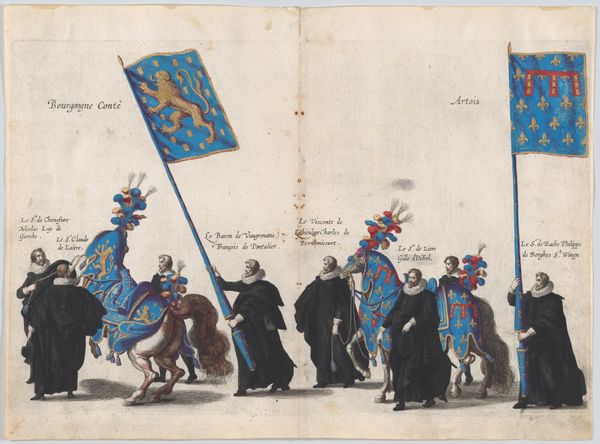 Bourgongne Conté
Artois
Le Sr. de Chenefure
Nicolas Lois de
Le Sr. Claude
de
Le Baron de Vaugrenans
François de Pontalier.
Le Visconte de
Charles de
Bernemicourt.
Le Sr. de Liers
Gille
Le Sr. de Bacho Philippe
de Borghes Sr.